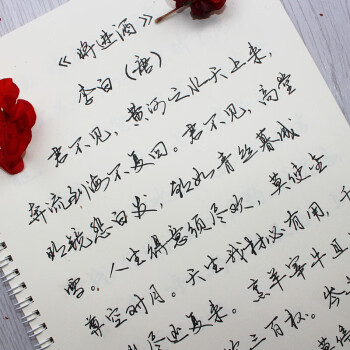 《将进酒》
李白（唐）
君不见，黄河之水天上来，
奔流到海不复回。君不见，高堂
明镜悲白发，朝如青丝暮成
雪。人生得意须尽欢，莫使金
尊空对月。天生我材必有用，千
尽还复来。烹羊宰牛且
三百杯。岑